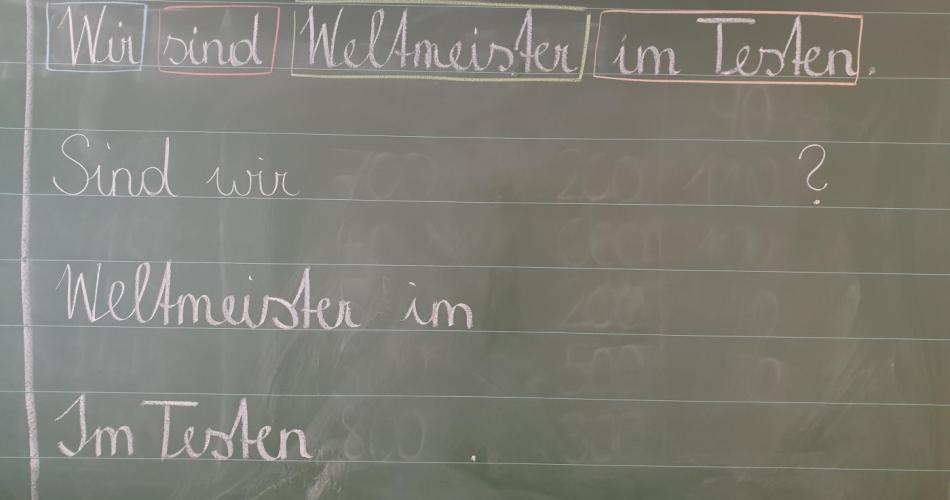 Wir sind Weltmeister im Testen.
Sind wir ?
Weltmeister im
Im Testen .